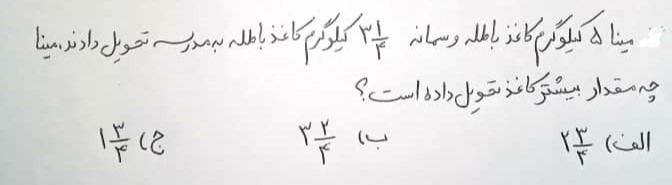 مینا ۵ کیلوگرم کاغذ باطله و سمانه ۳ ۱/۴ کیلوگرم کاغذ باطله به مدرسه تحویل دادند، مینا
چه مقدار بیشتر کاغذ تحویل داده است؟
الف) ۲ ۳/۴ ب) ۳ ۲/۴ ج) ۱ ۳/۴